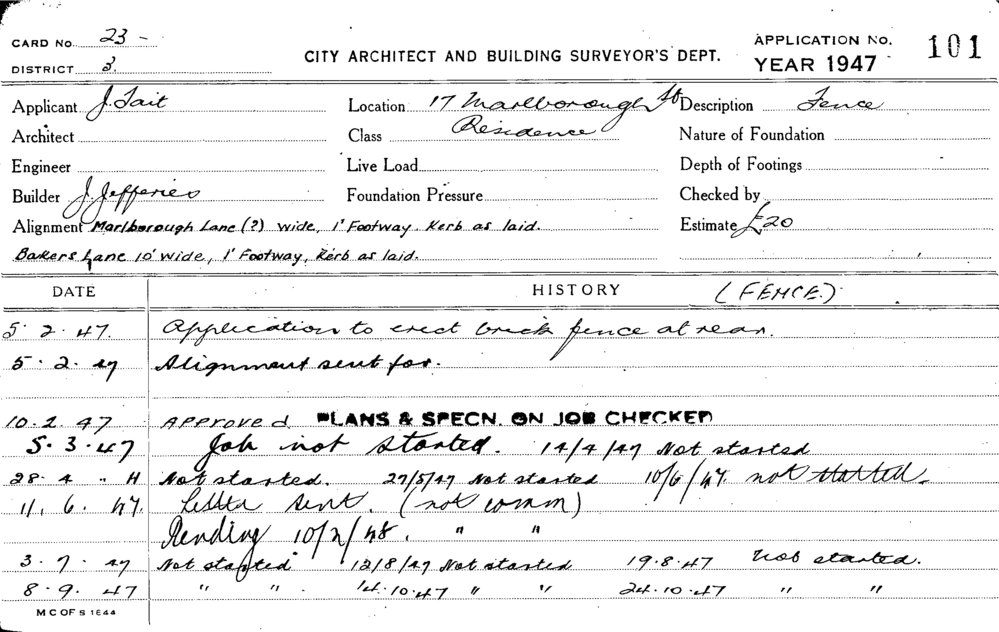 CARD No. 23 -
DISTRICT 3.
CITY ARCHITECT AND BUILDING SURVEYOR'S DEPT.
APPLICATION No. 101
YEAR 1947
Applicant J. Tait Location 17 Marlborough St Description Fence
Architect Class Residence Nature of Foundation
Engineer Live Load Depth of Footings
Builder J. Jefferies Foundation Pressure Checked by
Alignment Marlborough Lane (?) wide, 1' Footway. Kerb as laid. Estimate £20
Bakers Lane 10' wide, 1' Footway, Kerb as laid.
DATE HISTORY (FENCE.)
5.2.47. Application to erect brick fence at rear.
5.2.47 Alignment sent for.
10.2.47 Approved PLANS & SPECN. ON JOB CHECKED
5.3.47 Job not started. 14/4/47 Not started
28.4 " H Not started. 27/5/47 Not started 10/6/47. not started.
11.6.47. Letter sent. (not comm)
Pending 10/2/48. " "
3.7.47 Not started 12/8/47 Not started 19.8.47 Not started.
8.9.47 " " . 14.10.47 " " 24.10.47 " "
M C OF S 1644